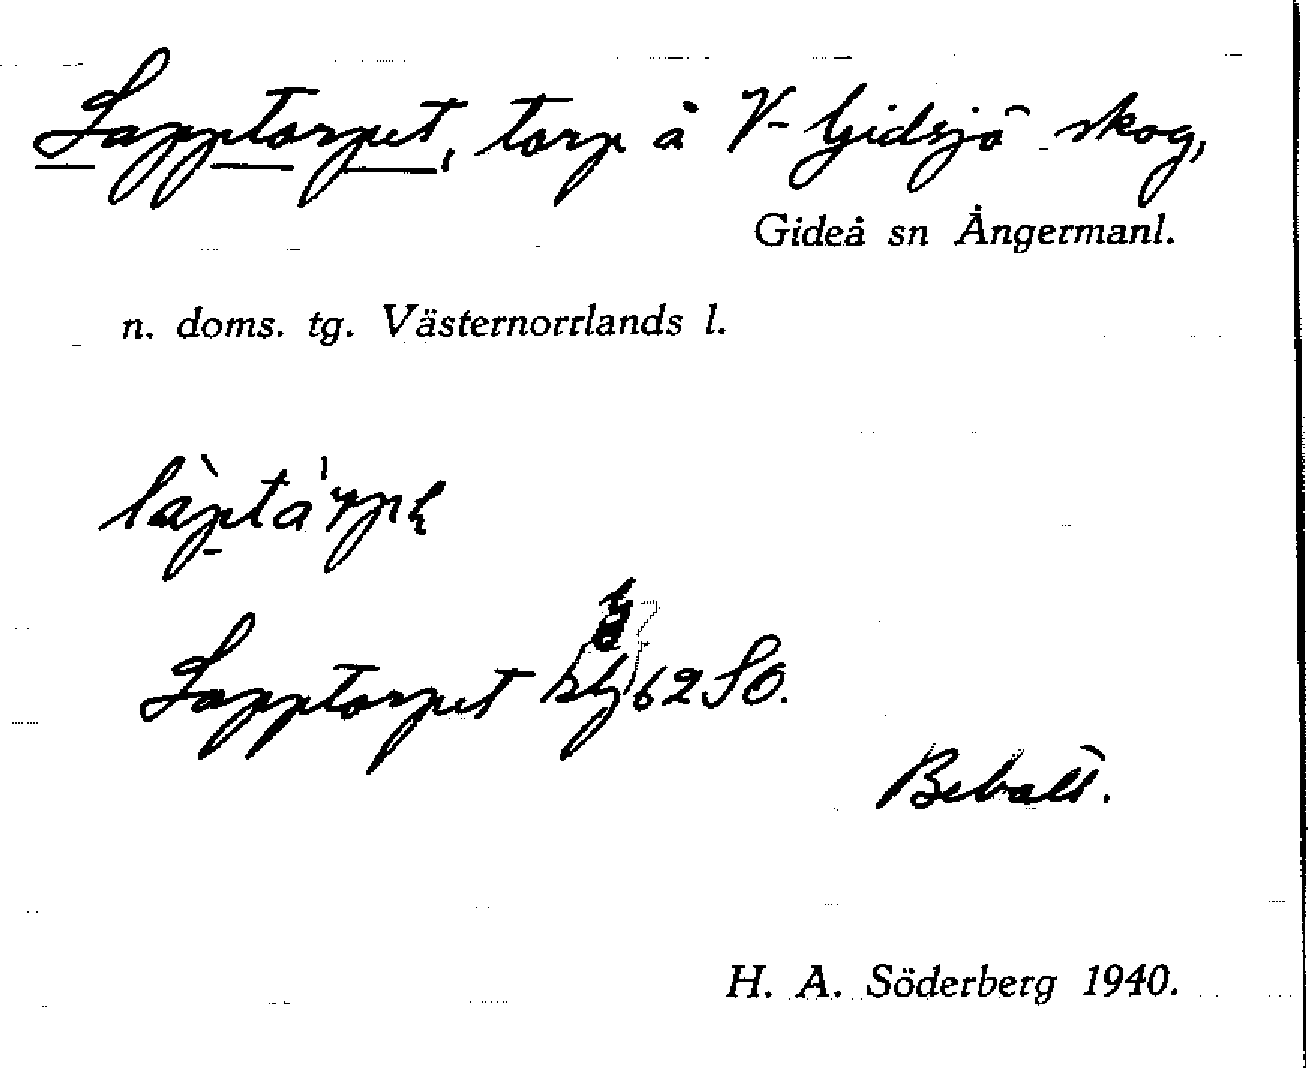 Lapptorpet, torp å V- Gidsjö skog,
Gideå sn Ångermanl.
n. doms. tg. Västernorrlands l.
Lapptorpet 62 SO.
Bebott.
H. A. Söderberg 1940.